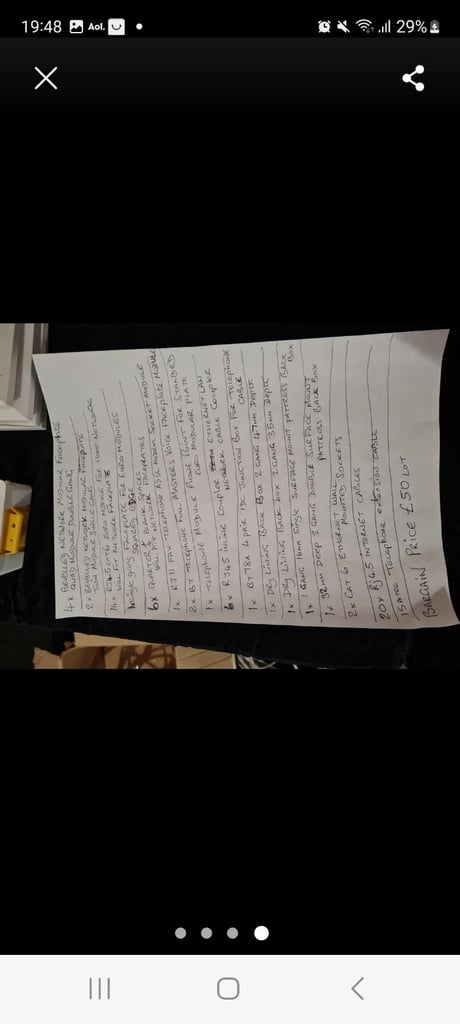 19:48 Aol. 29%
4x BEVELLED NETWORK MODULAR FACEPLATE
QUAD MODULE DOUBLE GANG
2x BEVELLED NETWORK MODULAR FACEPLATE
TWIN MODULE SINGLE GANG
RJ45 CAT6 EURO MODULE FOR HOME NETWORK
WILL FIT NETWORK FACEPLATE
FACEPLATE FOR EURO MODULES
SQUARED EDGE
6x QUARTER BLANK SPACES
WILL FIT MODULAR FACEPLATES
1x RJ11 FOR TELEPHONE ADSL MODEM SOCKET MODULE
8x BT TELEPHONE FULL MASTERS VOICE FACEPLATE MODULE
1x TELEPHONE MODULE PHONE POINT FOR STANDED
EURO MODULAR PLATE
6x RJ45 INLINE COUPLER ETHERNET LAN
NETWORK CABLE COUPLER
1x BT78A 4 PAIR IDC JUNCTION BOX FOR TELEPHONE
CABLE
1x DRY LINING BACK BOX 2 GANG 47MM DEPTH
1x DRY LINING BACK BOX 2 GANG 35MM DEPTH
1x 1 GANG 16MM SINGLE SURFACE MOUNT PATTRESS BACK
BOX
1x 32MM DEEP 2 GANG DOUBLE SURFACE MOUNT
PATTRESS BACK BOX
2x CAT 6 ETHERNET WALL
MOUNTED SOCKETS
20x RJ45 INTERNET CABLES
15 METRE TELEPHONE EXTENSION CABLE
BARGAIN PRICE £50 LOT